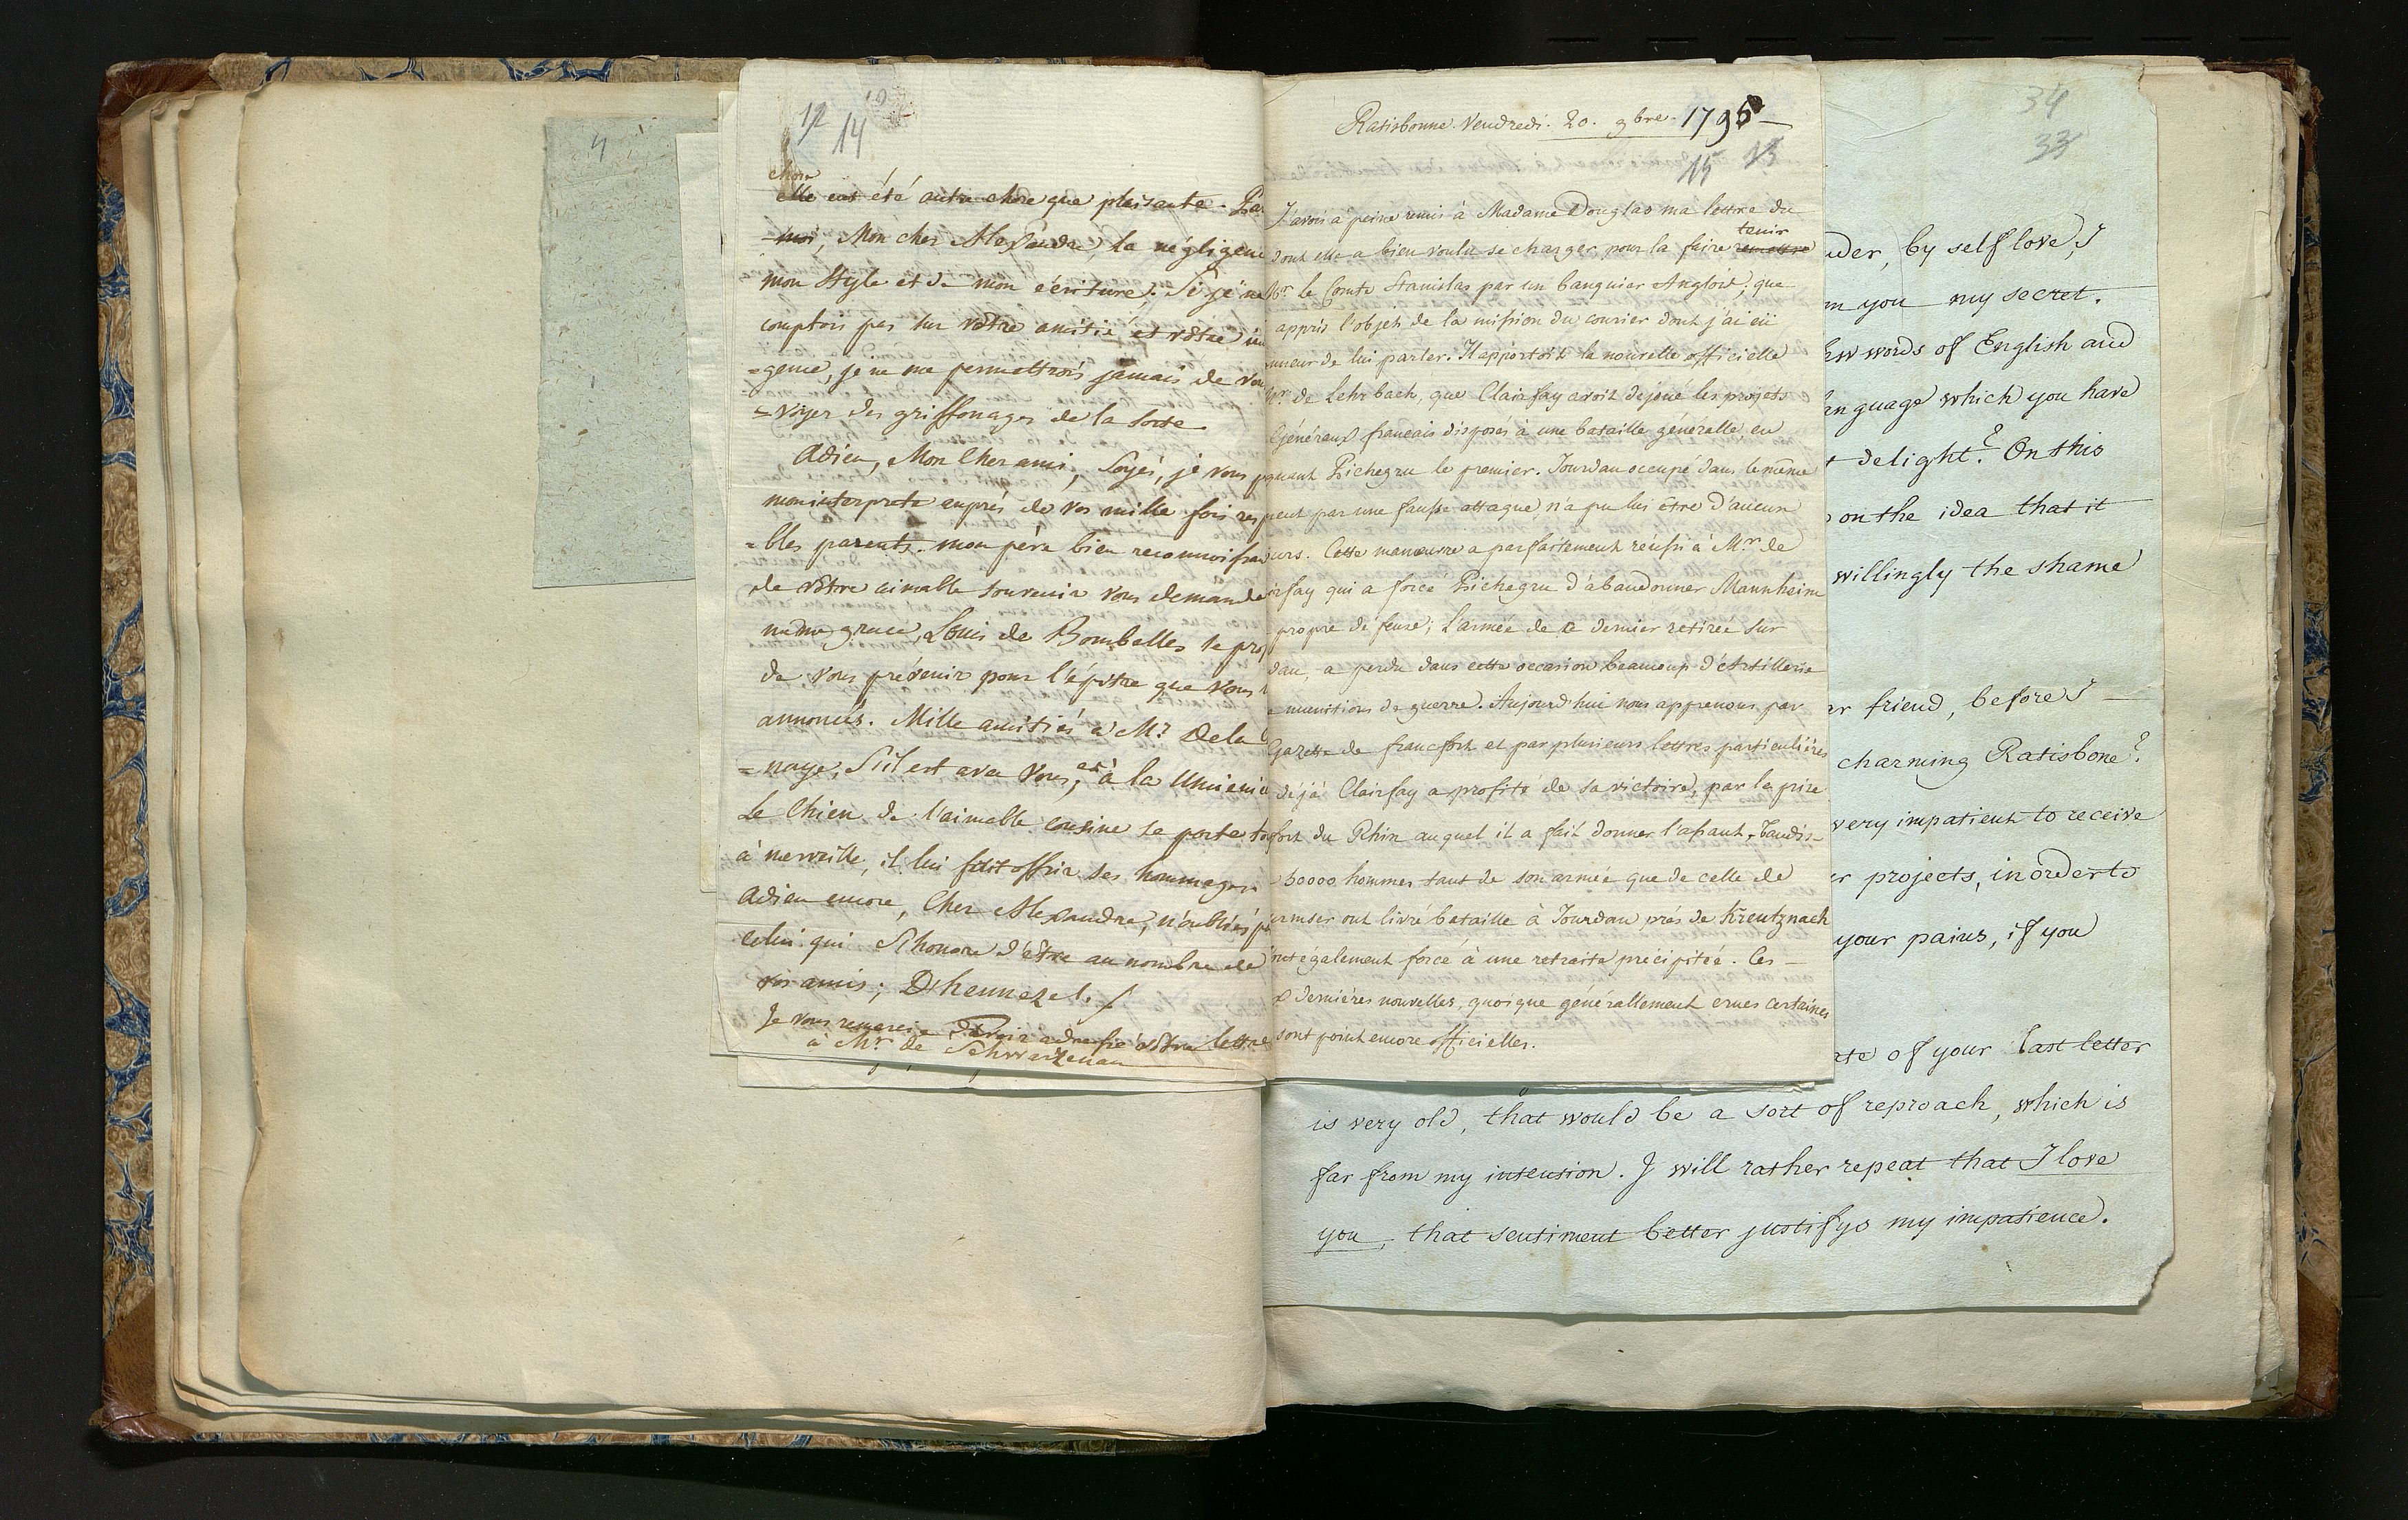 4
12 14
chose
elle eut été autre chose que plaisante. Par
-moi, Mon cher Alexandre, la négligence
mon Style et de mon écriture. Si je ne
comptois pas sur vôtre amitié et vôtre in
=gence, je ne me permettrois jamais de vou
=voyer des griffonages de la Sorte.
Adieu, Mon Cher ami, Soyés, je vous p
mon interprete auprés de vos mille fois resp
=bles parents. mon pére bien reconnoissan
de vôtre aimable souvenir vous demande la
même grace, Louis de Bombelles se prop
de vous prévenir pour l'épitre que vous
annoncés. Mille amitiés à Mr. Dela
=naye, S'il est avec vous, et à la
Le Chien de l'aimable cousine se porte to
à merveille, il lui fait offrir ses hommages.
Adieu encore, Cher Alexandre, n'oubliés p
celui qui S'honore d'être au nombre de
vos amis; D'hennezel.
Je vous remercie d'avoir adressé vôtre lettre
à Mr. de Schwarzenau
Ratisbonne. Vendredi. 20. 9bre. 1795
15 13
J'avois à peine remis à Madame Douglas ma lettre du
tenir
dont elle a bien voulu se charger pour la faire remettre
Mr. le Comte Stanislas par un banquier Anglois, que
appris l'objet de la mission du courier dont j'ai eû
nneur de lui parler. Il apportoit la nouvelle officielle
Mr. de Lehrbach, que Clairfay avoit dejoué les projets
Généraux francais disposés à une bataille générale en
quant Pichegru le premier. Jourdan occupé dans le même
ment par une fausse attaque, n'a pu lui etre d'aucun
urs. Cette manœuvre a parfaitement réussi à Mr. de
irfay qui a forcé Pichegru d'abandonner Mannheim
propre défense; L'armée de ce dernier retirée sur
dau, a perdu dans cette occasion beaucoup d'Artillerie
munitions de guerre. Aujourd'hui nous apprenons par
Gazette de francfort et par plusieurs lettres particulières
déjà Clairfay a profité de sa victoire, par la prise
fort du Rhin auquel il a fait donner l'assaut. Tandis-
60000 hommes tant de son armée que de celle de
urmser ont livré bataille à Jourdan prés de Kreutznach
ont également forcé à une retraite précipitée. Ces
x dernières nouvelles, quoique générallement crues certaines
sont point encore officielles.
34
33
nder, by self love, I
m you my secret.
few words of English and
anguage which you have
t delight? On this
on the idea that it
willingly the shame
ar friend, before I
charming Ratisbone?
very impatient to receive
er projects, in order to
your pains, if you
ate of your last letter
is very old, that would be a sort of reproach, which is
far from my intension. I will rather repeat that I love
you, that sentiment better justifys my impatience.